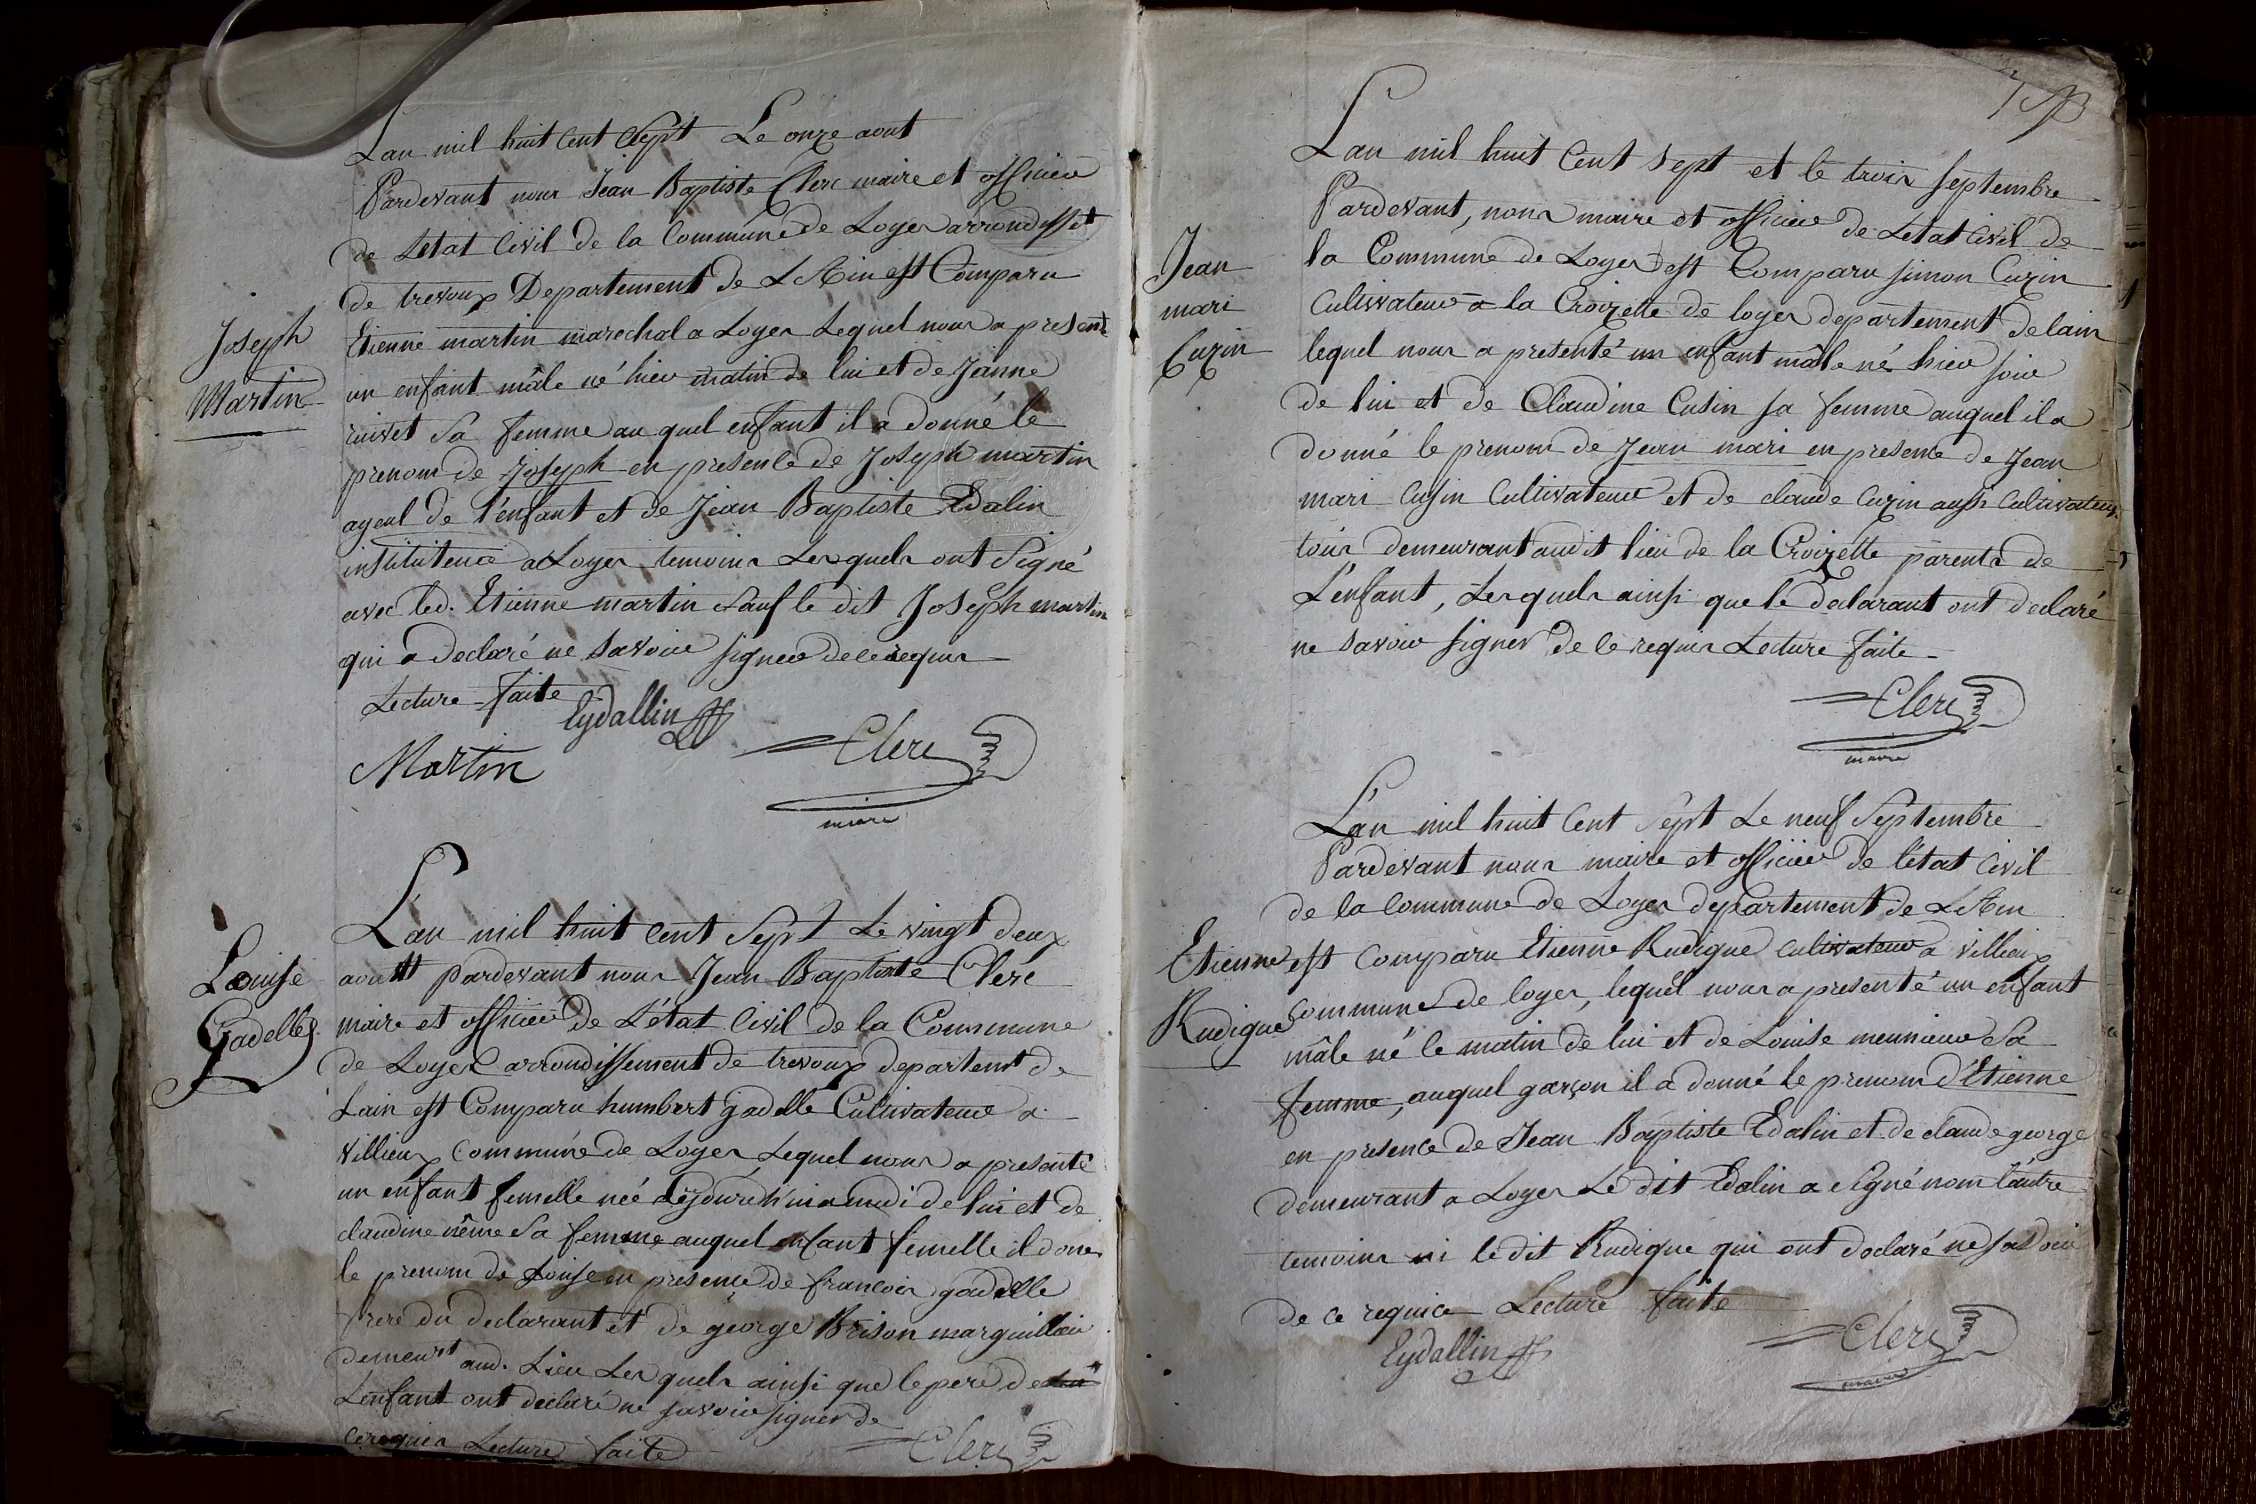 Joseph
Martin
Lan mil huit Cent Sept Le onze aout
Pardevant nous Jean Baptiste Clerc maire et officier
de Létat Civil de la Commune de Loyes arrondisst
de trevoux Departement de L'Ain est Comparu
Etienne martin marechal a Loyes Lequel nous a presenté
un enfant mâle né hier matin de lui et de Janne
ruivet Sa femme au quel enfant il a donné le
prenom de Joseph en presence de Joseph martin
ayeul de l'enfant et de Jean Baptiste Edalin
instituteur a Loyes temoins Lesquels ont Signé
avec led. Etienne martin Sauf le dit Joseph martin
qui a declaré ne Savoir signer de ce requis
Lecture faite
Eydallin
Martin
Clerc
maire
Louise
Gadelle
L'an mil huit cent Sept Le vingt deux
aoust pardevant nous Jean Baptiste Clerc
maire et officier de L'état Civil de la Commune
de Loyes arrondissement de trevoux departemt de
Lain est Comparu humbert gadelle Cultivateur a
Villieux Commune de Loyes Lequel nous a presenté
un enfant femelle née dejourd'hui a midi de lui et de
claudine même Sa femme auquel enfant femelle il done
le prenom de Louise en presence de françois gadelle
frere du declarant et de george Brison marguillier
demeurt aud. Lieu Les quels ainsi que le pere de
L'enfant ont declaré ne savoir signer de
ce requis Lecture faite
Clerc
Jean
mari
Cuzin
L'an mil huit Cent Sept et le trois septembre
Pardevant, nous maire et officier de Létat Civil de
la Commune de Loyes est Comparu simon Cuzin
Cultivateur a la Croizette de loyes departement de lain
lequel nous a presenté un enfant mâle né hier soir
de lui et de Claudine Cusin sa femme auquel il a
donné le prenom de Jean mari en presence de Jean
mari Cusin Cultivateur et de claude Cuzin aussi Cultivateur
tous demeurant audit lieu de la Croizette parents de
L'enfant, Les quels ainsi que le declarant ont declaré
ne savoir signer de ce requis Lecture faite
Clerc
maire
Etienne
Rudigue
L'an mil huit Cent Sept Le neuf Septembre
Pardevant nous maire et officier de l'état Civil
de la Commune de Loyes departement de L'Ain
est Comparu Etienne Rudigue cultivateur a Villieux
Commune de loyes, lequel nous a presenté un enfant
mâle né le matin de lui et de Louise meunier Sa
femme, auquel garçon il a donné le prenom d'Etienne
en presence de Jean Baptiste Edalin et de claude george
demeurant a Loyes Le dit Edalin a Signé nom l'autre
temoins ni le dit Rudigue qui ont declaré ne savoir
de ce requice Lecture faite
Eydallin
Clerc
maire